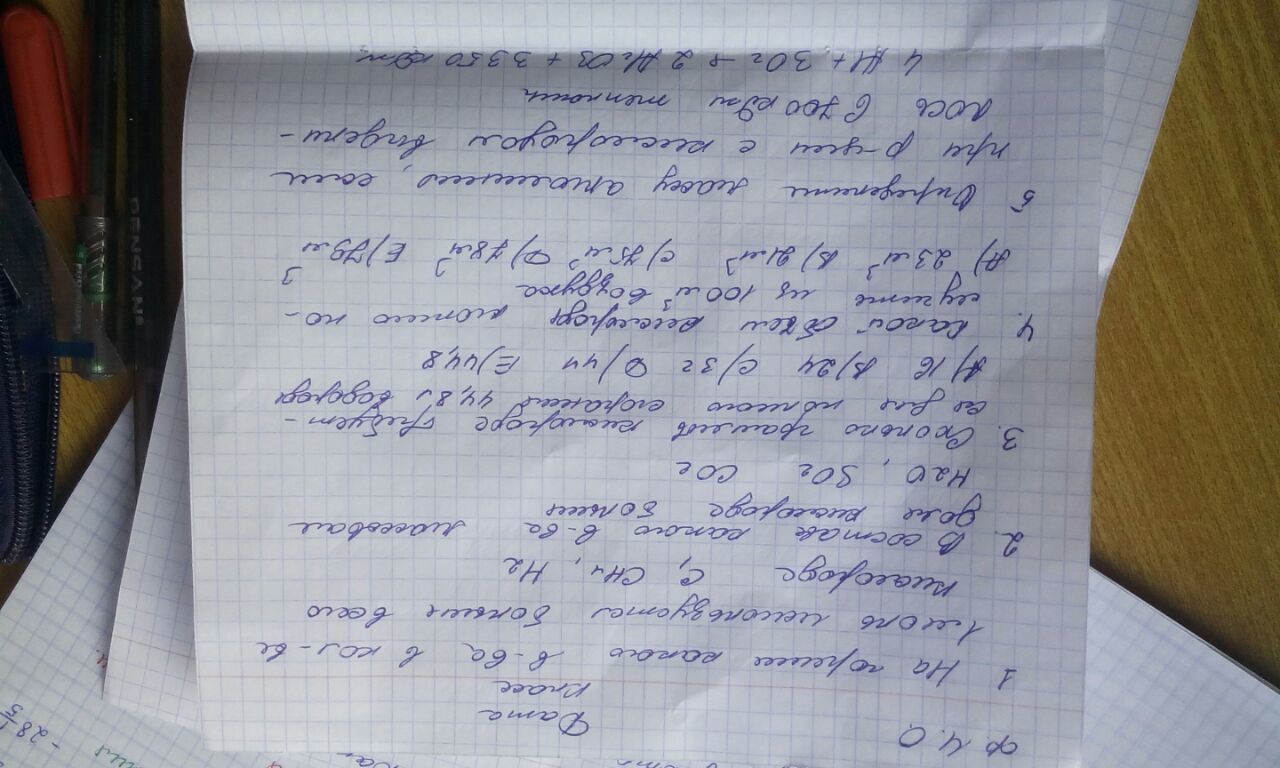 Ф. И. О
Дата
Класс
1 На горение какого в-ва в кол-ве
1 моль используется больше всего
кислорода C, CH4, H2
2. В составе какого в-ва массовая
доля кислорода больше
H2O, SO2 CO2
3. Сколько граммов кислорода требует-
ся для полного сгорания 44,8л водорода
A) 16 B) 24 C) 32 D) 44 E) 44,8
4. Какой объем кислорода можно по-
лучить из 100 м³ воздуха
A) 23 м³ B) 21 м³ C) 75 м³ D) 78 м³ E) 79 м³
5 Определите массу алюминия, если
при р-ции с кислородом выдели-
лось 6700 кДж теплоты
4 Al + 3O2 → 2 Al2O3 + 3350 кДж
PENSAN
- 28 1/5